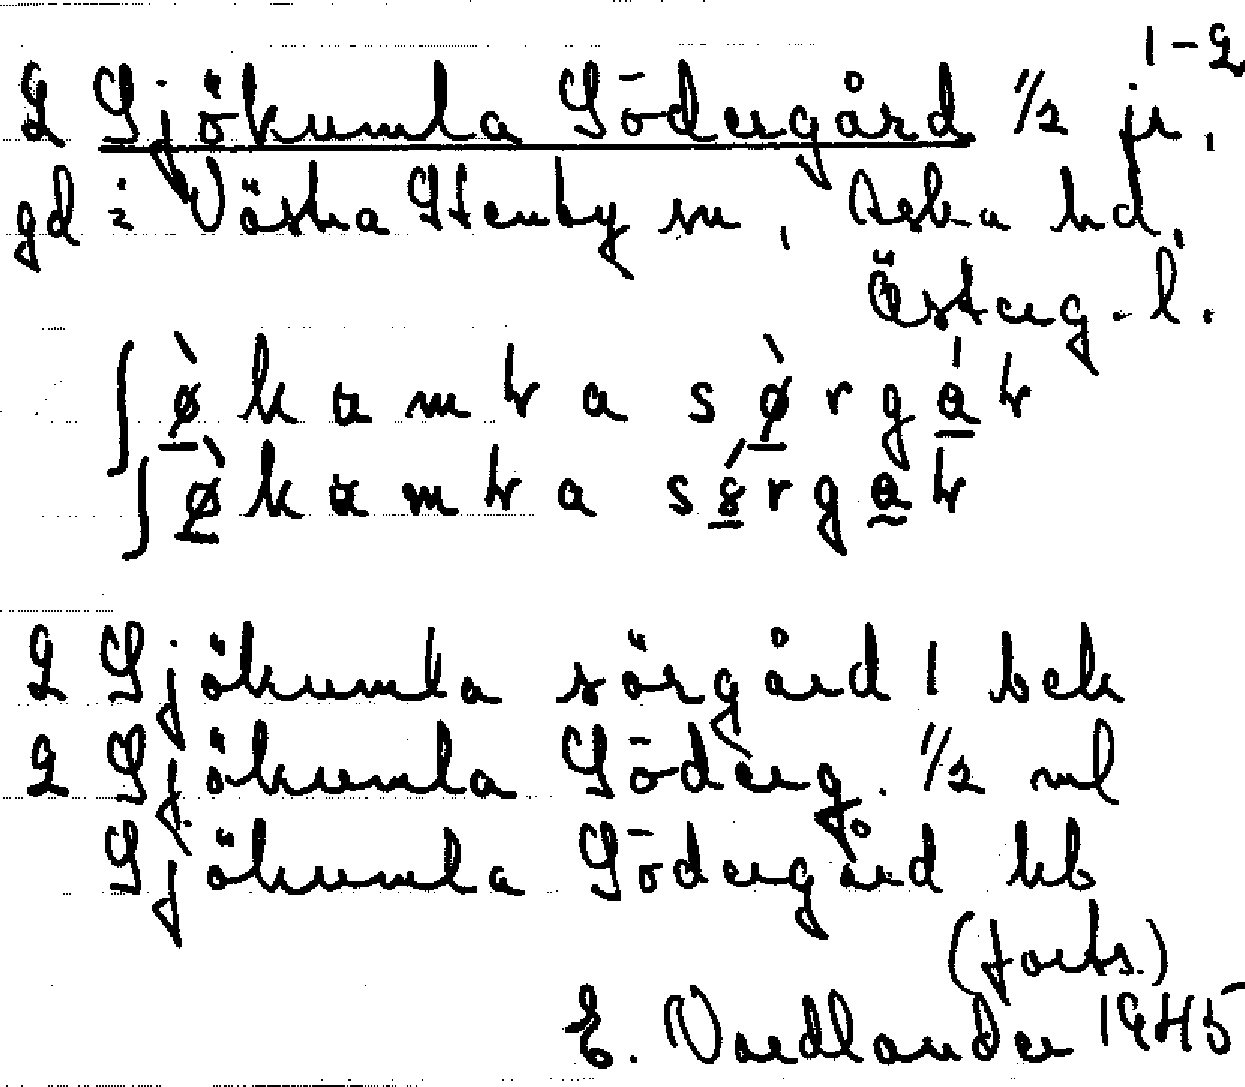 1-2
2 Sjökumla Södergård 1/2 jr,
gd i Västra Stenby sn, Aska hd,
Österg. l.
ʃø̀kamɫa sø̀rgáɫ
ʃø̀kamɫa sśrgaɫ
2 Sjökumla sörgård 1 bek
2 Sjökumla Söderg. 1/2 ml
Sjökumla Södergård kb
(forts.)
E. Nordlander 1945